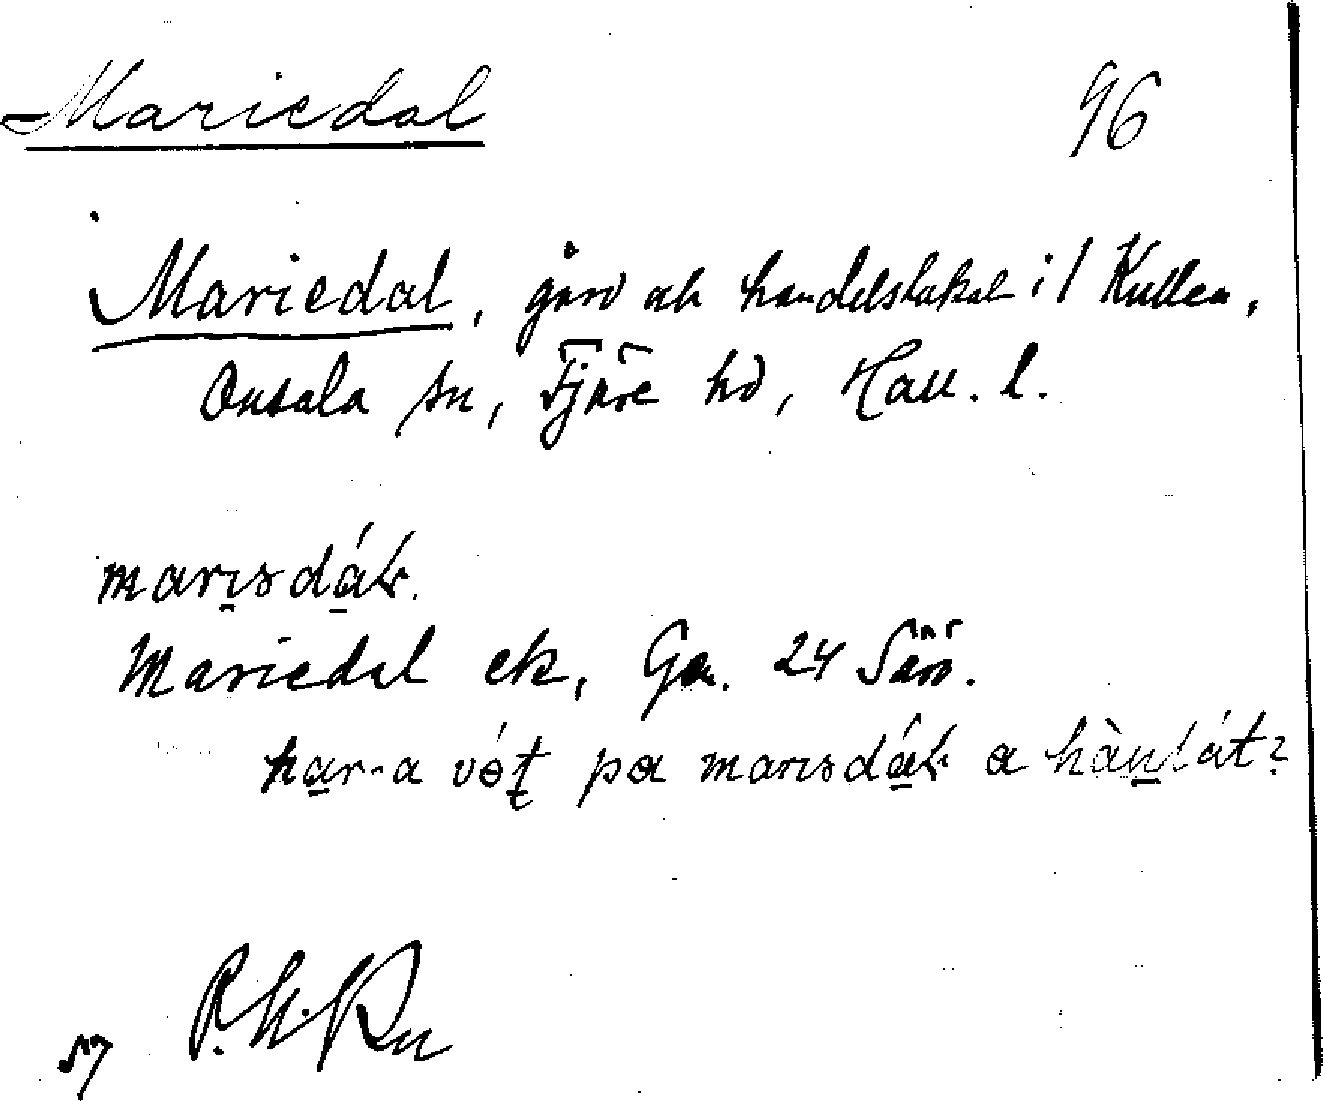 Mariedal 96
Mariedal, gård och handelslokal i l Kullen,
Onsala sn, Fjäre hd, Hall. l.
marısdák.
Mariedal ek, Ga. 24 Särö.
har-a vót̨ pa marısdák a hànlát?